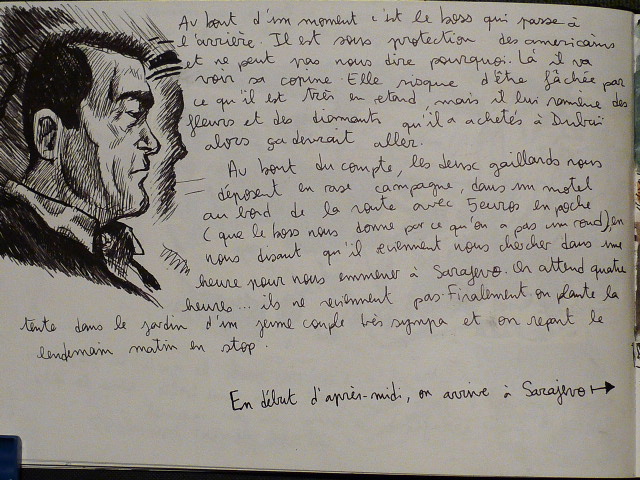 Au bout d'un moment c'est le boss qui passe à
l'arrière. Il est sous protection des americains
et ne peut pas nous dire pourquoi. Là il va
voir sa copine. Elle risque d'être fâchée par
ce qu'il est très en retard, mais il lui ramène des
fleurs et des diamants qu'il a achetés à Dubaï
alors ça devrait aller.
Au bout du compte, les deux gaillards nous
déposent en rase campagne, dans un motel
au bord de la route avec 5euros en poche
(que le boss nous donne par ce qu'on a pas un rond), en
nous disant qu'il reviennent nous chercher dans une
heure pour nous emmener à Sarajevo. On attend quatre
heures... ils ne reviennent pas. Finalement on plante la
tente dans le jardin d'un jeune couple très sympa et on repart le
lendemain matin en stop.
En début d'après-midi, on arrive à Sarajevo →